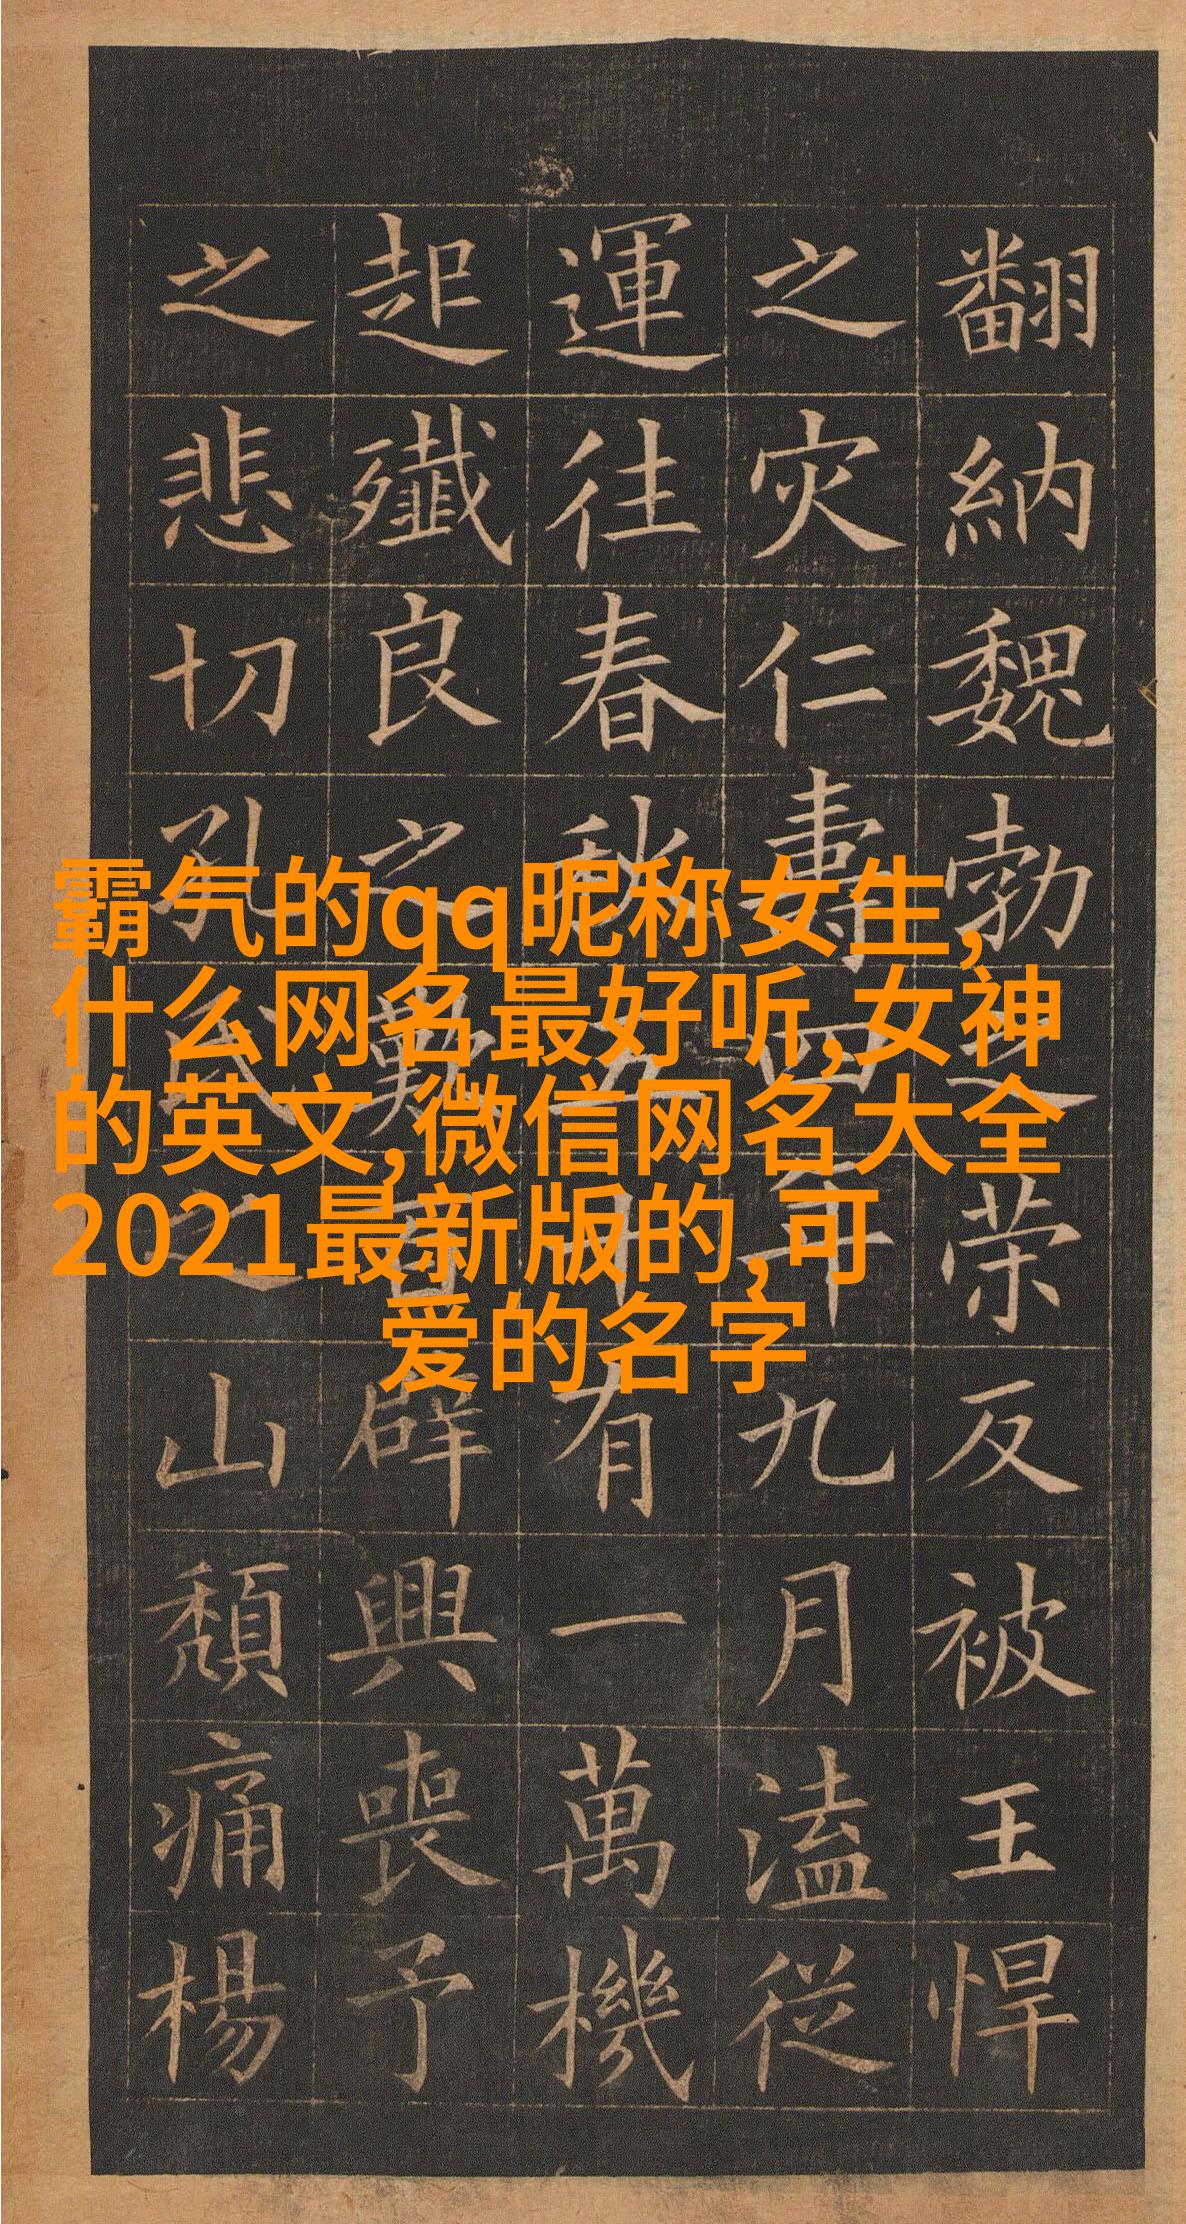 霸气的qq昵称女生,
什么网名最好听,女神
的英文,微信网名大全
2021最新版的,可
爱的名字
翻納魏勃之荣反被王悍
之灾仁壽四年九月溘從
運往春秋五十有一萬機
起殲良之歎百辟興喪予
之悲切孔氏之山頹痛楊